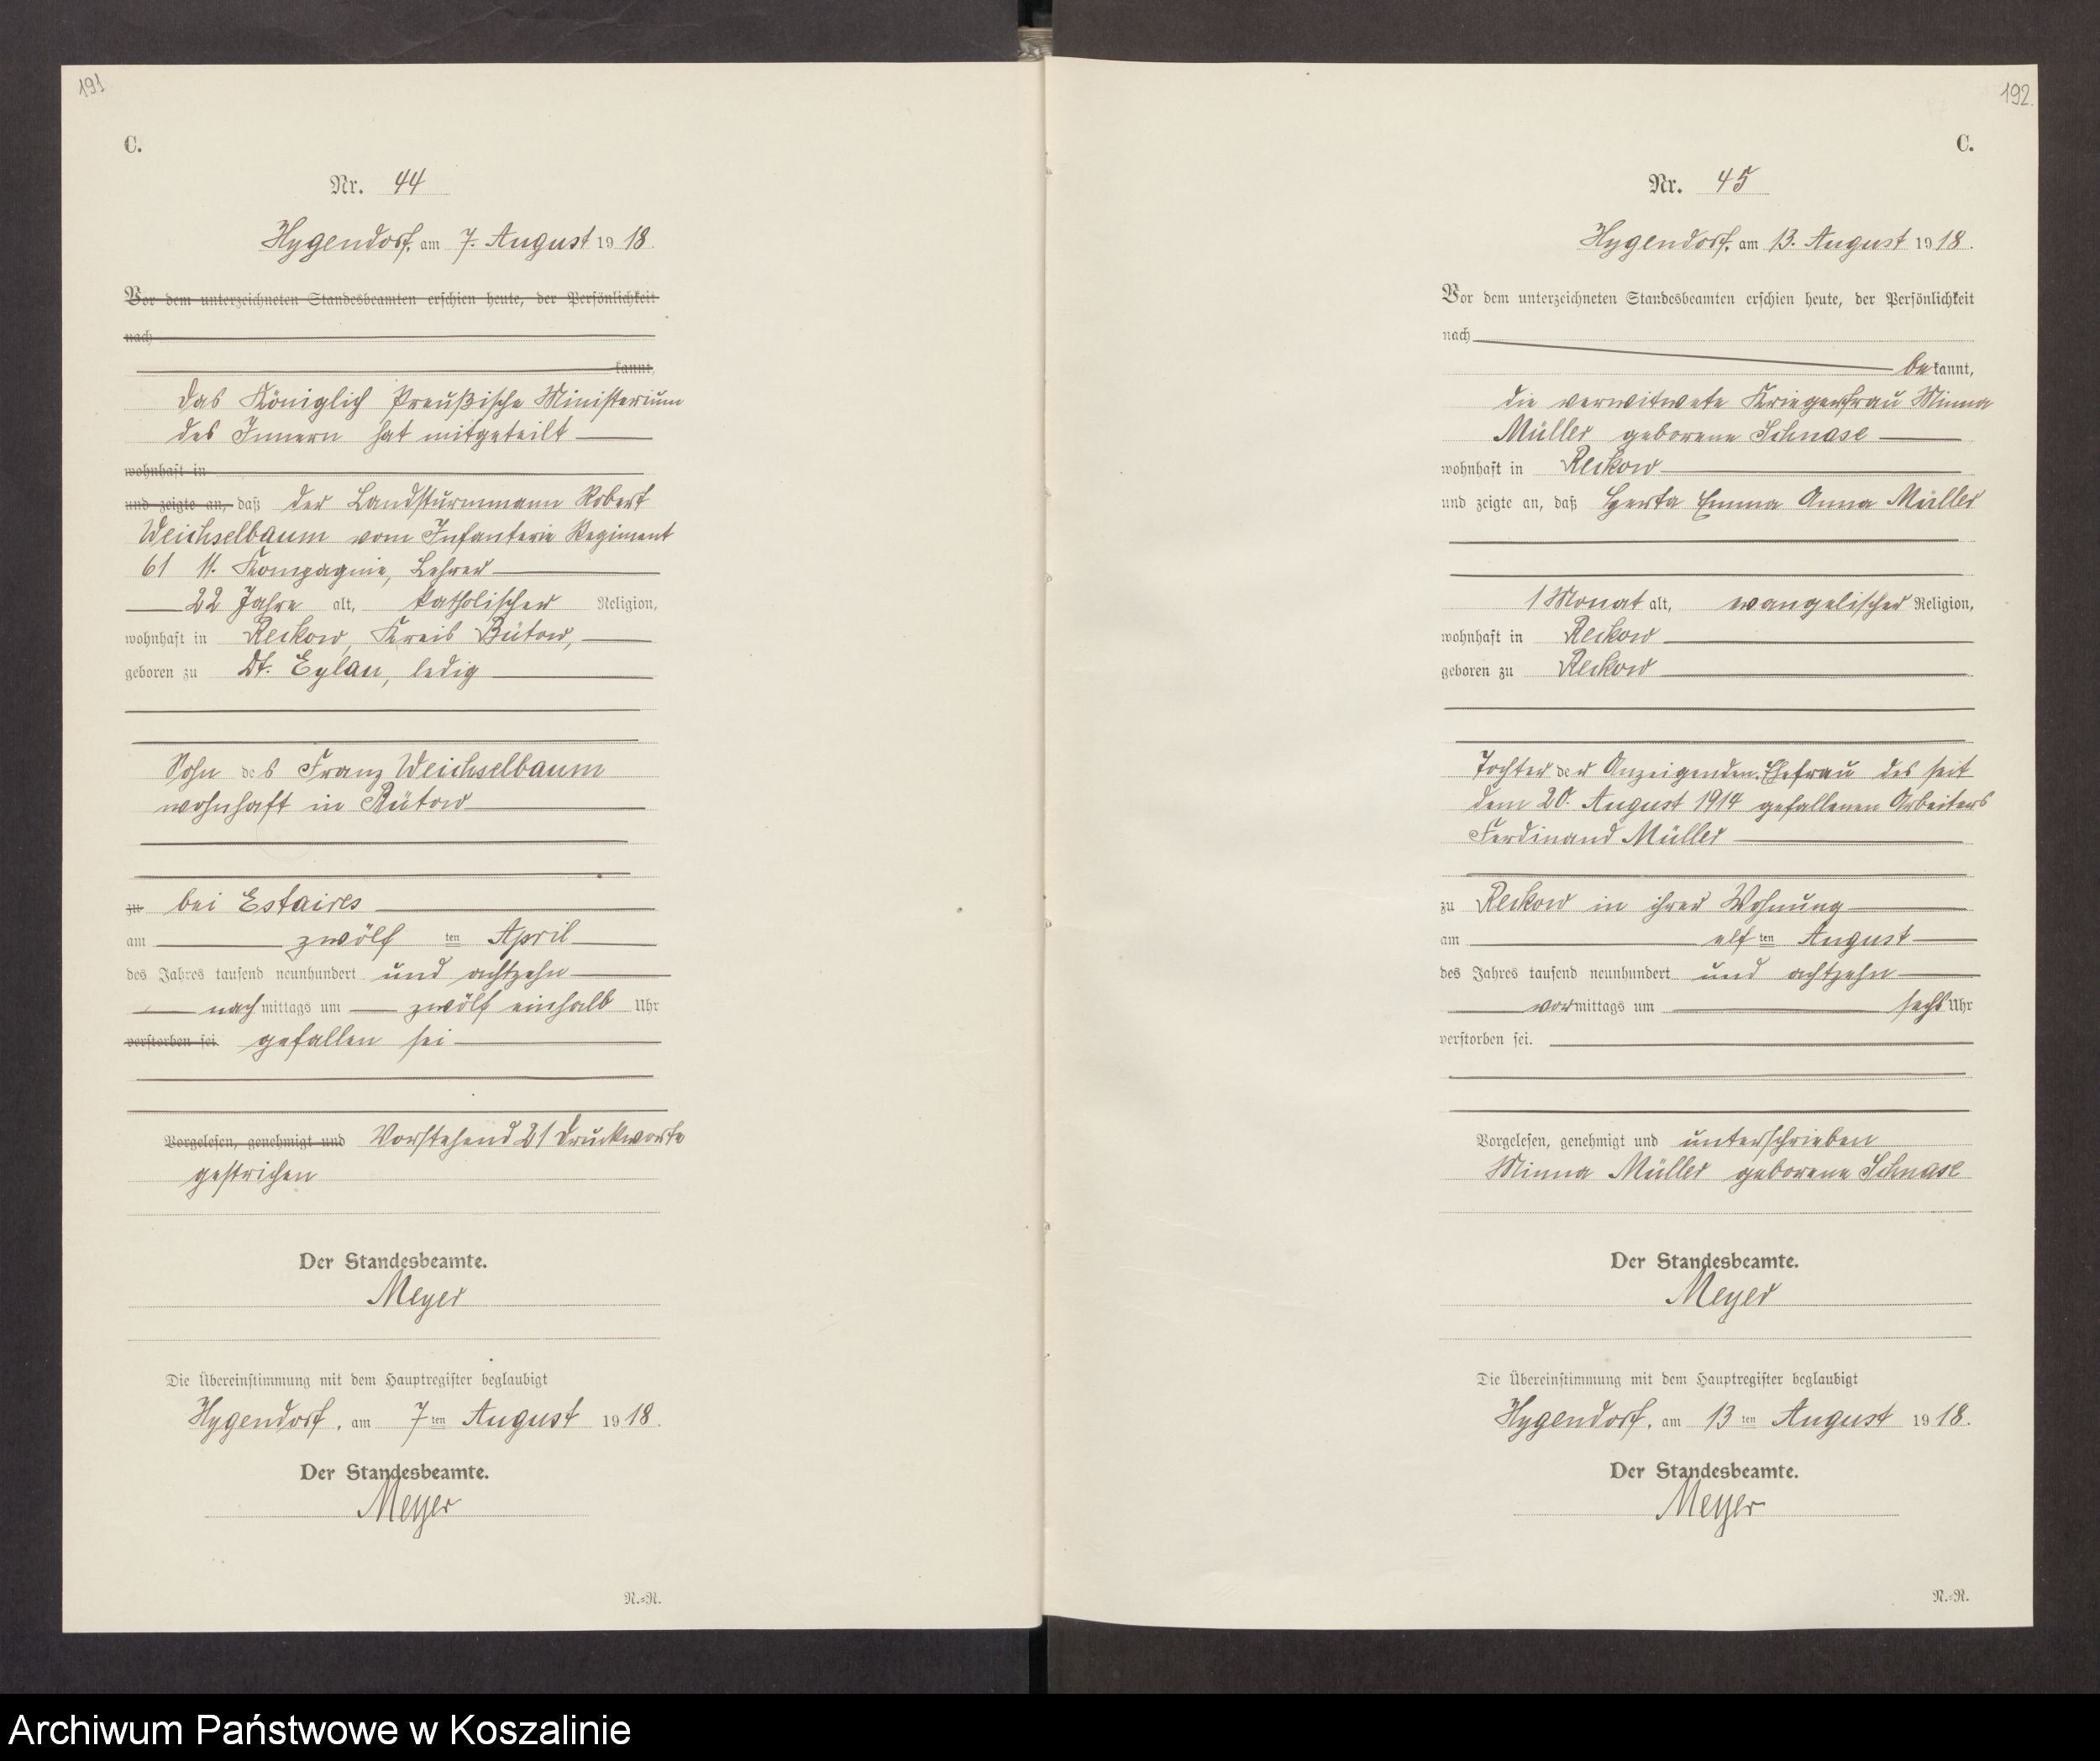 191
C.
Nr. 44
Hygendorf, am 7. August 1918.
Vor dem unterzeichneten Standesbeamten erschien heute, der Persönlichkeit
nach
kannt,
das Königlich Preußische Ministerium
des Innern hat mitgeteilt
wohnhaft in
und zeigte an, daß der Landsturmmann Robert
Weichselbaum vom Infanterie Regiment
61 11. Kompagnie, Lehrer
22 Jahre alt, katholischer Religion,
wohnhaft in Reckow, Kreis Bütow,
geboren zu Dt. Eylau, ledig
Sohn des Franz Weichselbaum
wohnhaft in Bütow
zu bei Estaires
am zwölf ten April
des Jahres tausend neunhundert und achtzehn
nachmittags um zwölf einhalb Uhr
verstorben sei gefallen sei
Vorgelesen, genehmigt und Vorstehend 21 Druckworte
gestrichen
Der Standesbeamte.
Meyer
Die Übereinstimmung mit dem Hauptregister beglaubigt
Hygendorf, am 7ten August 1918.
Der Standesbeamte.
Meyer
N.=R.
192.
C.
Nr. 45
Hygendorf, am 13. August 1918.
Vor dem unterzeichneten Standesbeamten erschien heute, der Persönlichkeit
nach
bekannt,
die verwitwete Kriegerfrau Minna
Müller geborene Schnase
wohnhaft in Reckow
und zeigte an, daß Herta Emma Anna Müller
1 Monat alt, evangelischer Religion,
wohnhaft in Reckow
geboren zu Reckow
Tochter der Anzeigenden, Ehefrau des seit
dem 20. August 1914 gefallenen Arbeiters
Ferdinand Müller
zu Reckow in ihrer Wohnung
am elf ten August
des Jahres tausend neunhundert und achtzehn
vormittags um sechs Uhr
verstorben sei.
Vorgelesen, genehmigt und unterschrieben
Minna Müller geborene Schnase
Der Standesbeamte.
Meyer
Die Übereinstimmung mit dem Hauptregister beglaubigt
Hygendorf, am 13ten August 1918.
Der Standesbeamte.
Meyer
N.=R.
Archiwum Państwowe w Koszalinie